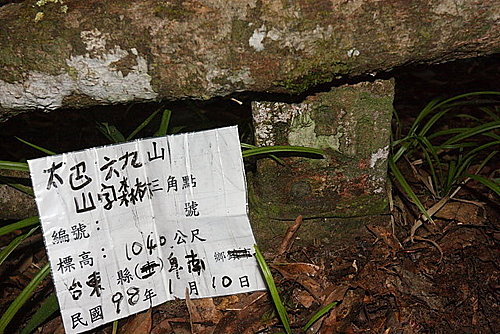 太巴六九山
山字森林三角點
編號： 號
標高：1040公尺
台東縣(市)卑南鄉
民國98年1月10日